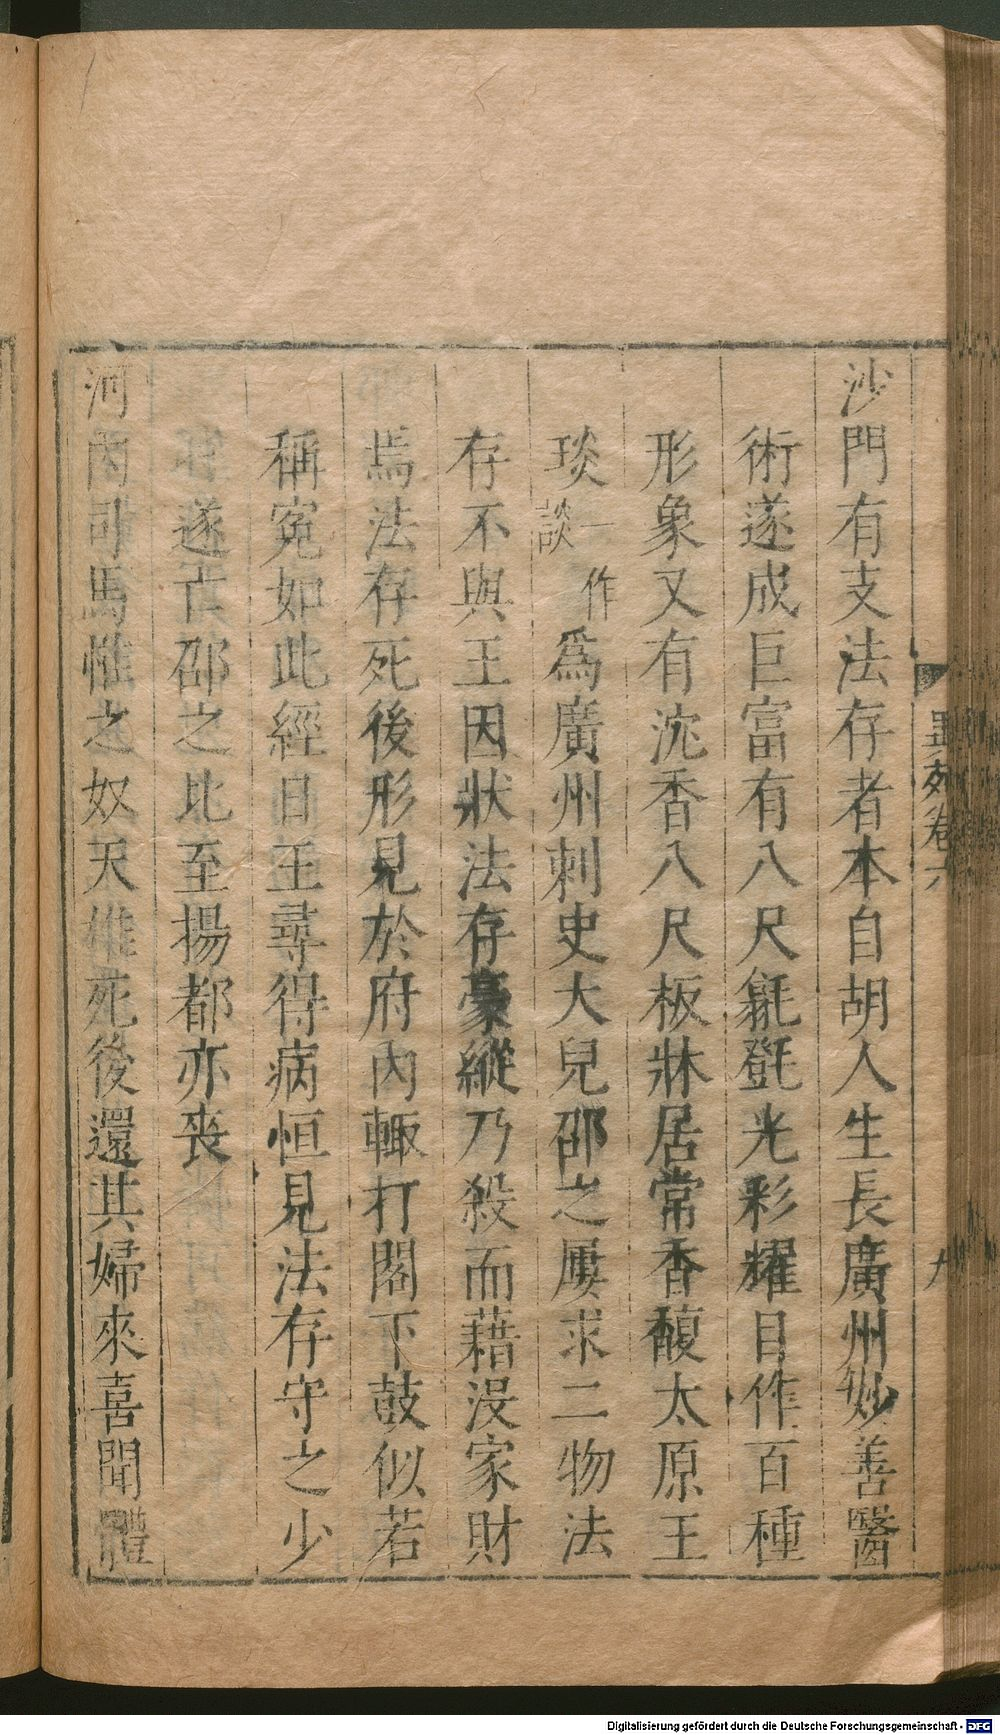 沙門有支法存者本自胡人生長廣州妙善醫
術遂成巨富有八尺㲪㲪光彩耀目作百種
形象又有沈香八尺板牀居常香馥太原王
琰一作談爲廣州刺史大兒邵之屢求二物法
存不與王因狀法存豪縱乃殺而藉沒家財
焉法存死後形見於府內輙打閣下鼓似若
稱冤如此經日王尋得病恒見法存守之少
遂亡邵之比至揚都亦喪
河內司馬惟之奴天雄死後還其婦來喜聞體
異苑卷六
九
Digitalisierung gefördert durch die Deutsche Forschungsgemeinschaft - DFG